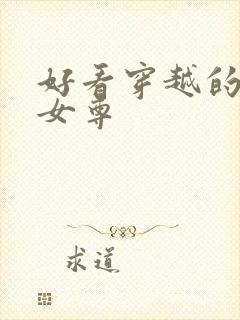 好看穿越的
女尊
求道